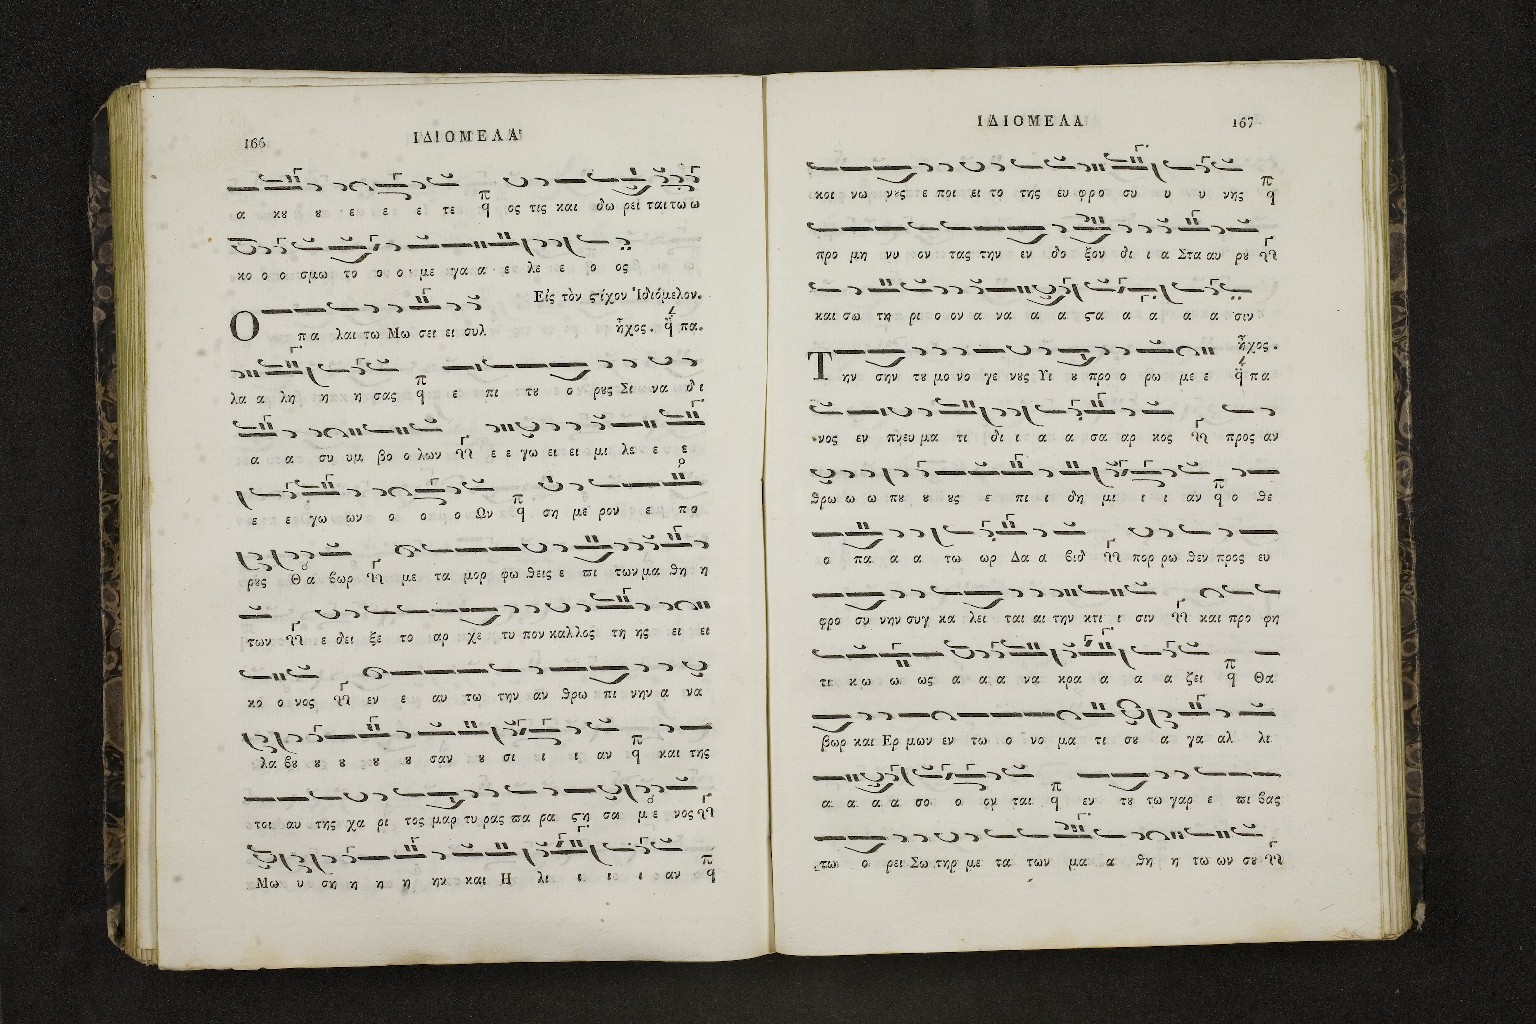 166
ΙΔΙΟΜΕΛΑ
α κȣ ȣ ε ε ε τε ος τις και δω ρει ται τω ω
κο ο ο σμω το ο ο με γα α ε λε ε ο ος
Εἰς τὸν ϛίχον Ἰδιόμελον.
Ο πα λαι τω Μω σει ει συλ ἦχος. πα.
λα α λη η η σας ε πι τȣ ο ρȣς Σι να δι
α α συ υμ βο ο λων ε ε γω ει ει μι λε ε ε
ε ε γω ων ο ο ο Ων ση με ρον ε πο
ρȣς Θα βωρ με τα μορ φω θεις ε πι των μα θη η
των ε δει ξε το αρ χε τυ πον καλλος τη ης ει ει
κο ο νος εν ε αυ τω την αν θρω πι νην α να
λα βȣ ȣ ȣ ȣ ȣ σαν ȣ σι ι ι αν και της
τοι αυ της χα ρι τος μαρ τυ ρας πα ρα ϛη σα με νος
Μω υ ση η η η ην και Η λι ι ι ι αν
ΙΔΙΟΜΕΛΑ
167
κοι νω νȣς ε ποι ει το της ευ φρο συ υ υ νης
προ μη νυ ον τας την εν δο ξον δι ι α Σται αυ ρȣ
και σω τη ρι ο ον α να α α ϛα α α α α σιν
ἦχος.
Την σην τȣ μο νο γε νȣς Υι ȣ προ ο ρω με ε πα
νος εν πνευ μα τι δι ι α α σα αρ κος προς αν
θρω ω ω πȣ ȣ ȣς ε πι ι δη μι ι ι αν ο θε
ο πα α α τω ωρ Δα α βιδ πορ ρω θεν προς ευ
φρο συ νην συγ κα λει ται αι την κτι ι σιν και προ φη
τι κω ω ως α α α να κρα α α α ζει Θα
βωρ και Ερ μων εν τω ο νο μα τι σȣ α γα αλ λι
α α α α σο ο ον ται εν τȣ τω γαρ ε πι βας
τω ο ρει Σω τηρ με τα των μα α θη η τω ων σȣ